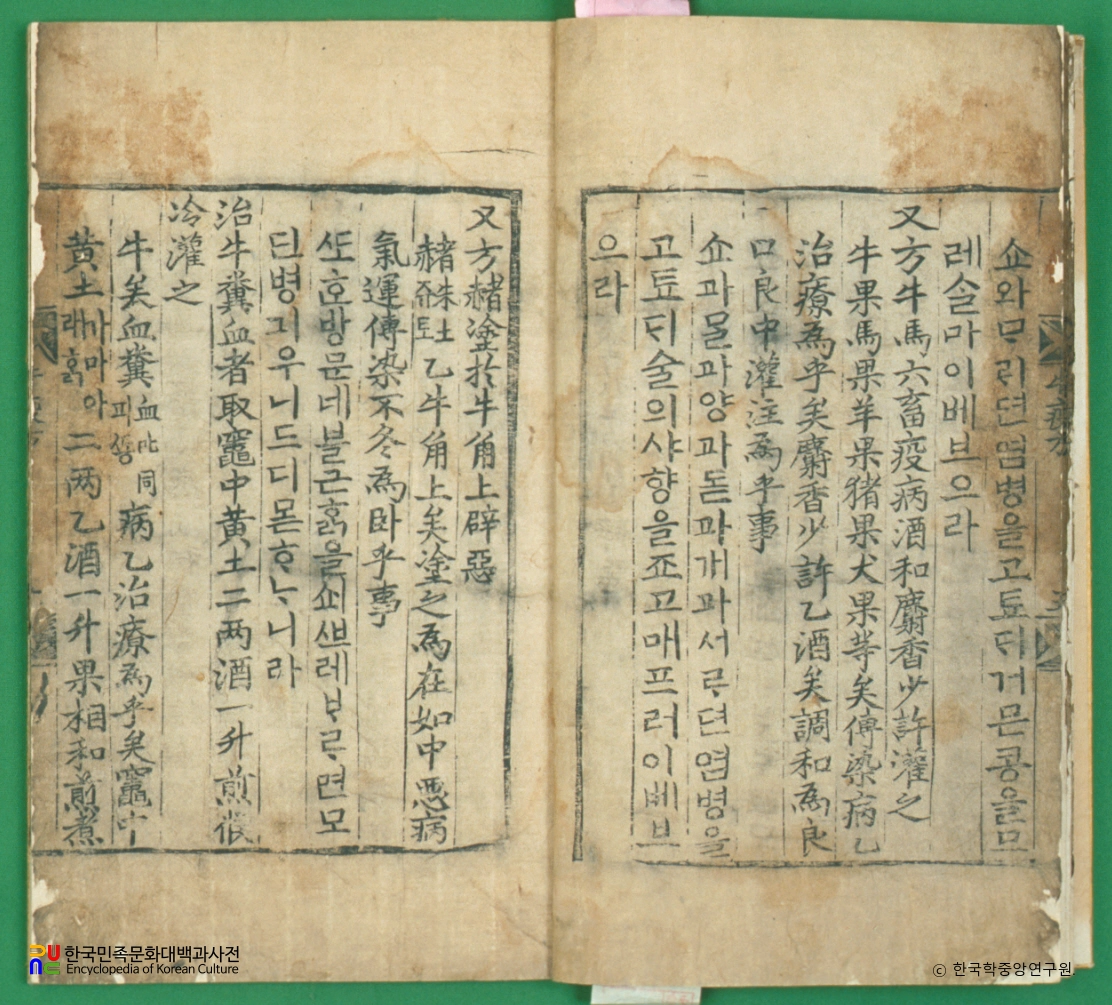 쇼와ᄆᆞ리뎐염병을고툐ᄃᆡ거믄콩을므
레ᄉᆞᆯ마이베브으라
又方牛馬六畜疫病酒和麝香少許灌之
牛果馬果羊果猪果犬果等矣傳染病乙
治療爲乎矣麝香少許乙酒矣調和爲良
口良中灌注爲乎事
쇼과ᄆᆞᆯ과양과돋과개과서르뎐염병을
고툐ᄃᆡ술의샤향을죠고매프러이베브
으라
又方赭塗於牛角上辟惡
赭朱土乙牛角上矣塗之爲在如中惡病
氣運傳染不冬爲臥乎事
ᄯᅩᄒᆞᆫ방문네블근ᄒᆞᆰ을쇠ᄲᅳ레ᄇᆞᄅᆞ면모
딘병긔우니드디몯ᄒᆞᄂᆞ니라
治牛糞血者取竈中黃土二兩酒一升煎候
冷灌之
牛矣血糞血피糞ᄯᅩᆼ同病乙治療爲乎矣竈中
黃土가마아래ᄒᆞᆰ二兩乙酒一升果相和煎煮
한국민족문화대백과사전
Encyclopedia of Korean Culture
ⓒ 한국학중앙연구원